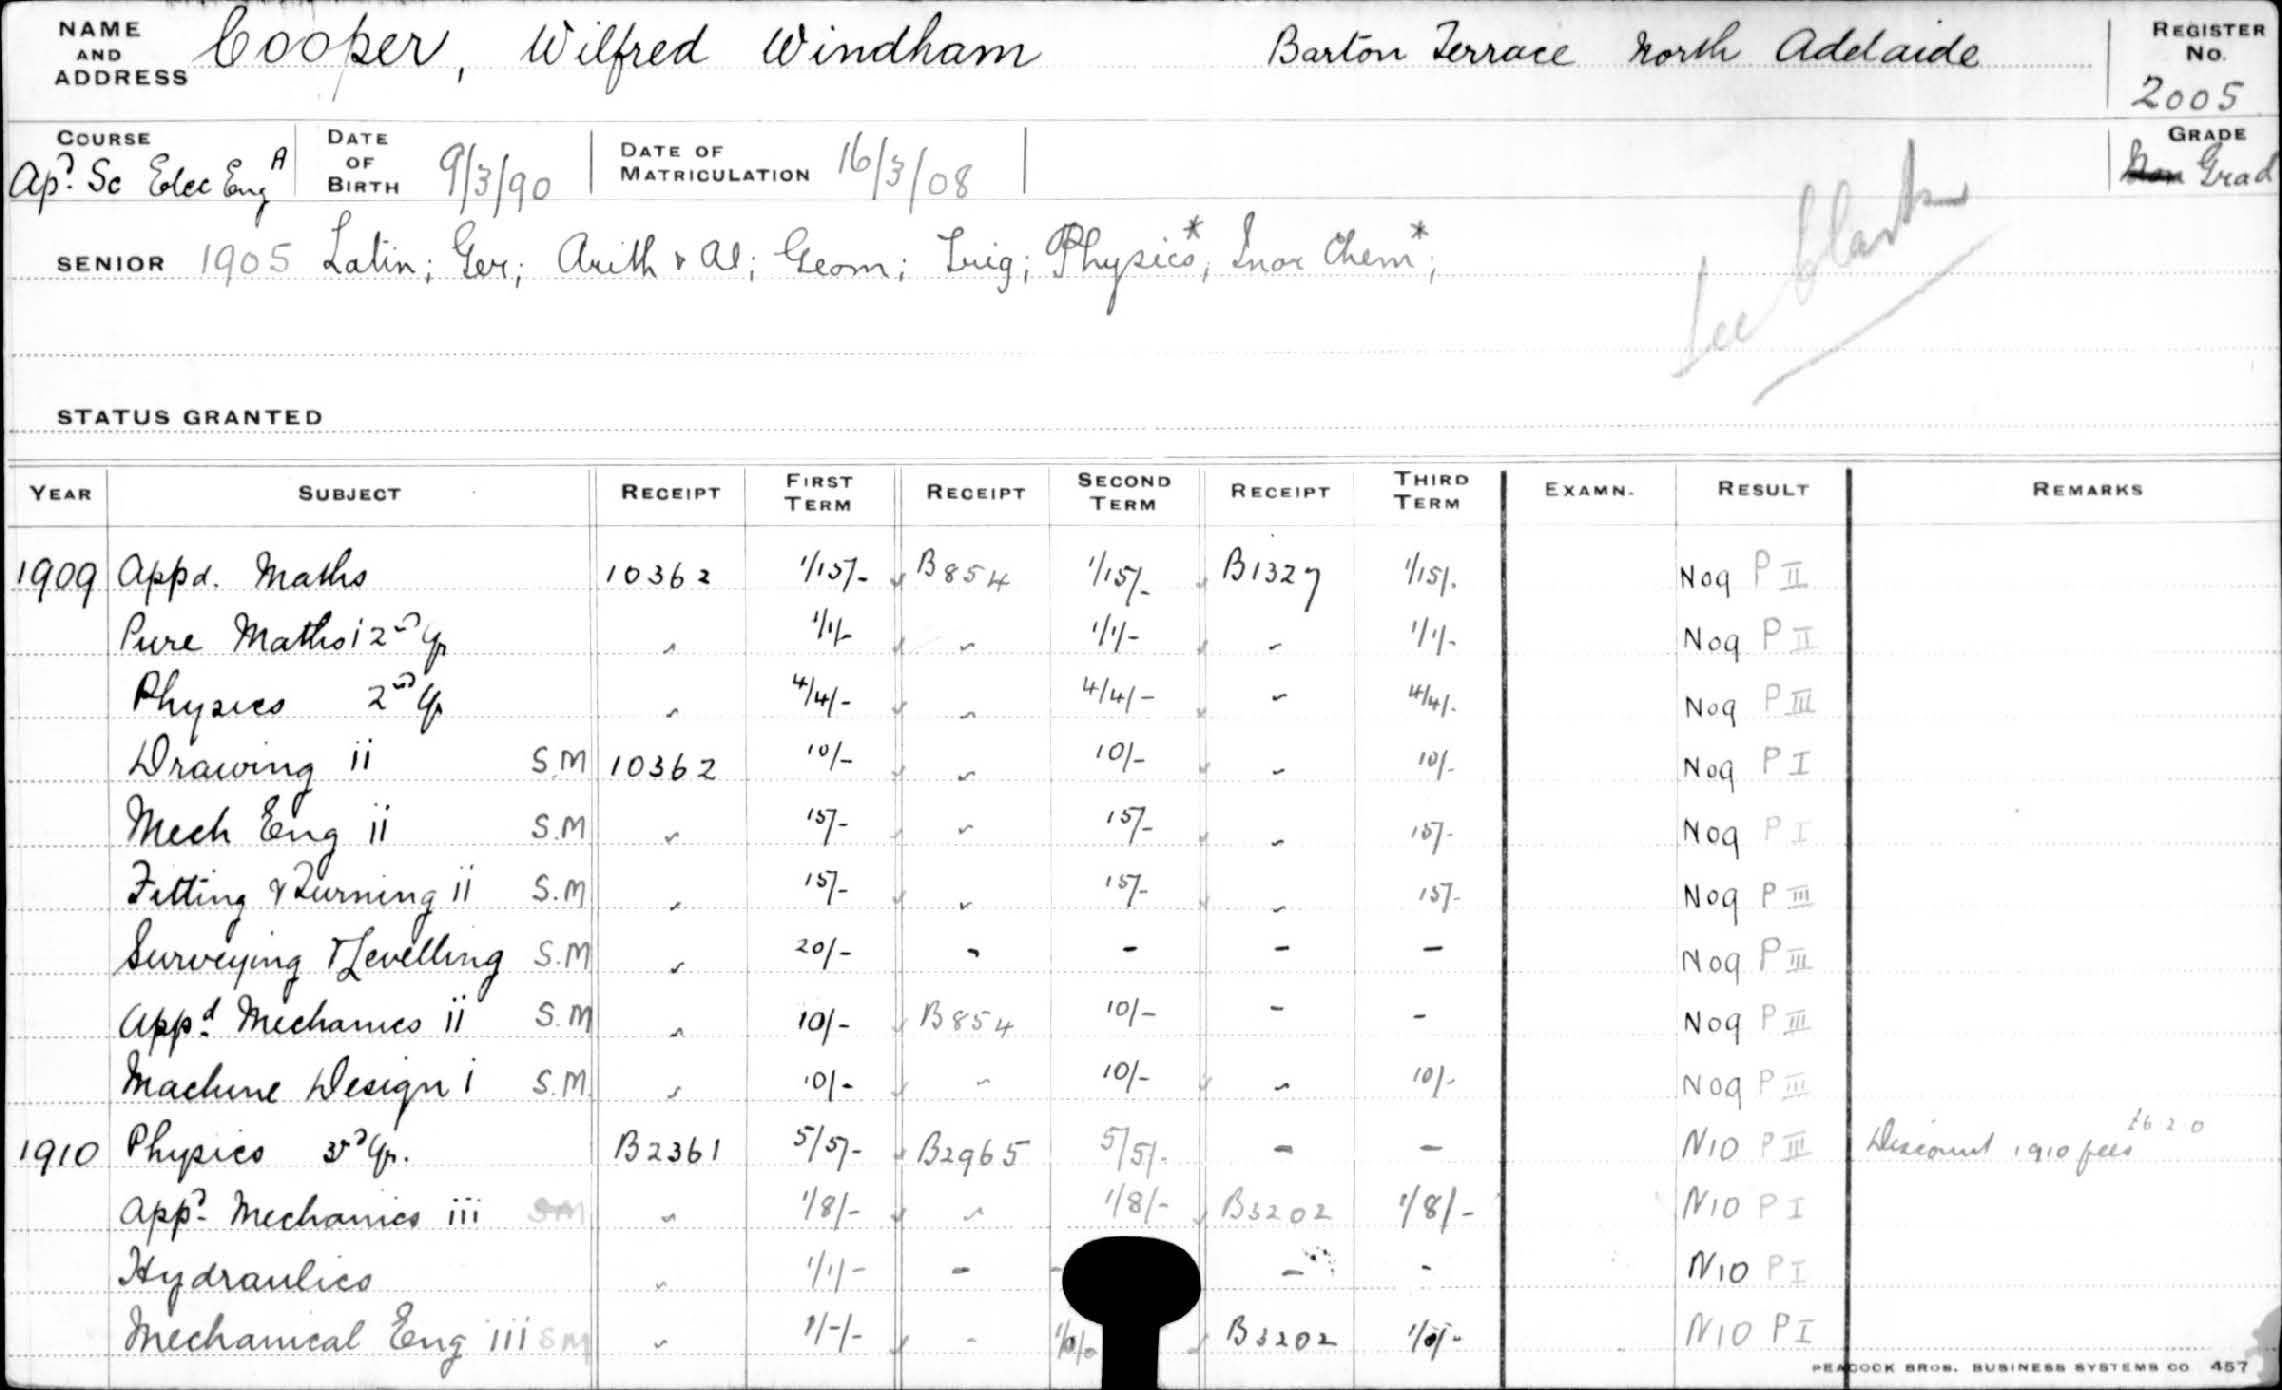 NAME AND ADDRESS Cooper, Wilfred Windham Barton Terrace North Adelaide REGISTER No. 2005
COURSE Apd. Sc Elec Eng A DATE OF BIRTH 9/3/90 DATE OF MATRICULATION 16/3/08 GRADE Non Grad
SENIOR 1905 Latin; Ger; Arith & Al; Geom; Trig; Physics*; Inor Chem*;
STATUS GRANTED
YEAR SUBJECT RECEIPT FIRST TERM RECEIPT SECOND TERM RECEIPT THIRD TERM EXAMN. RESULT REMARKS
1909 Appd. Maths 10362 1/15/- B854 1/15/- B1327 1/15/. N09 P II
Pure Maths 2nd Yr 1/1/- 1/1/- 1/1/- N09 P II
Physics 2nd Yr 4/4/- 4/4/- 4/4/- N09 P III
Drawing ii S.M 10362 10/- 10/- 10/- N09 P I
Mech Eng ii S.M 15/- 15/- 15/- N09 P I
Fitting & Turning ii S.M 15/- 15/- 15/- N09 P III
Surveying & Levelling S.M 20/- - - - - N09 P III
Appd. Mechanics ii S.M 10/- B854 10/- - - N09 P III
Machine Design i S.M. 10/- 10/- 10/- N09 P III
1910 Physics 3rd Yr. B2361 5/5/- B2965 5/5/- - - N10 P III Discount 1910 fees £6 2 0
Appd. Mechanics iii SM 1/8/- 1/8/- B3202 1/8/- N10 P I
Hydraulics 1/1/- - - - - N10 P I
Mechanical Eng iii SM 1/-/- B3202 N10 P I
PEACOCK BROS. BUSINESS SYSTEMS CO 457